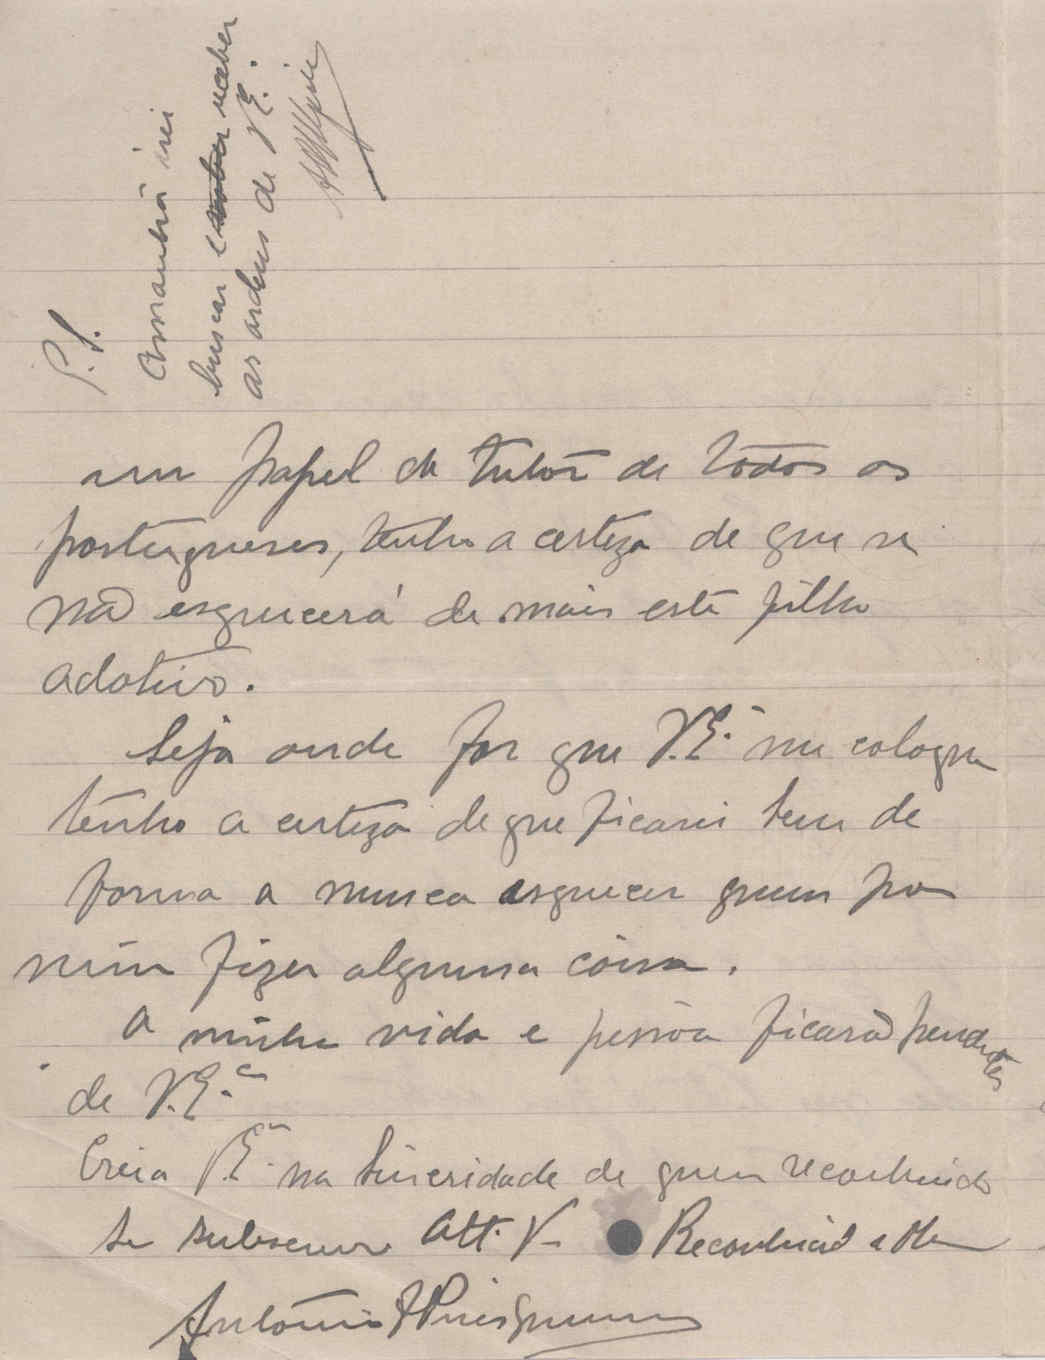 P.S.
Amanhã irei
buscar e receber
as ordens de V.Eª.
um papel de tutor de todos os
portugueses, tenho a certeza de que se
não esquecerá de mais este filho
adotivo.
Seja onde for que V.Eª. me coloque
tenho a certeza de que ficarei bem de
forma a nunca esquecer quem por
mim fizer alguma coisa.
A minha vida e pessoa ficarão pendentes
de V.Eª.
Creia V.Eª. na sinceridade de quem reconhecido
se subscreve Att. Vº Reconhecido e
António